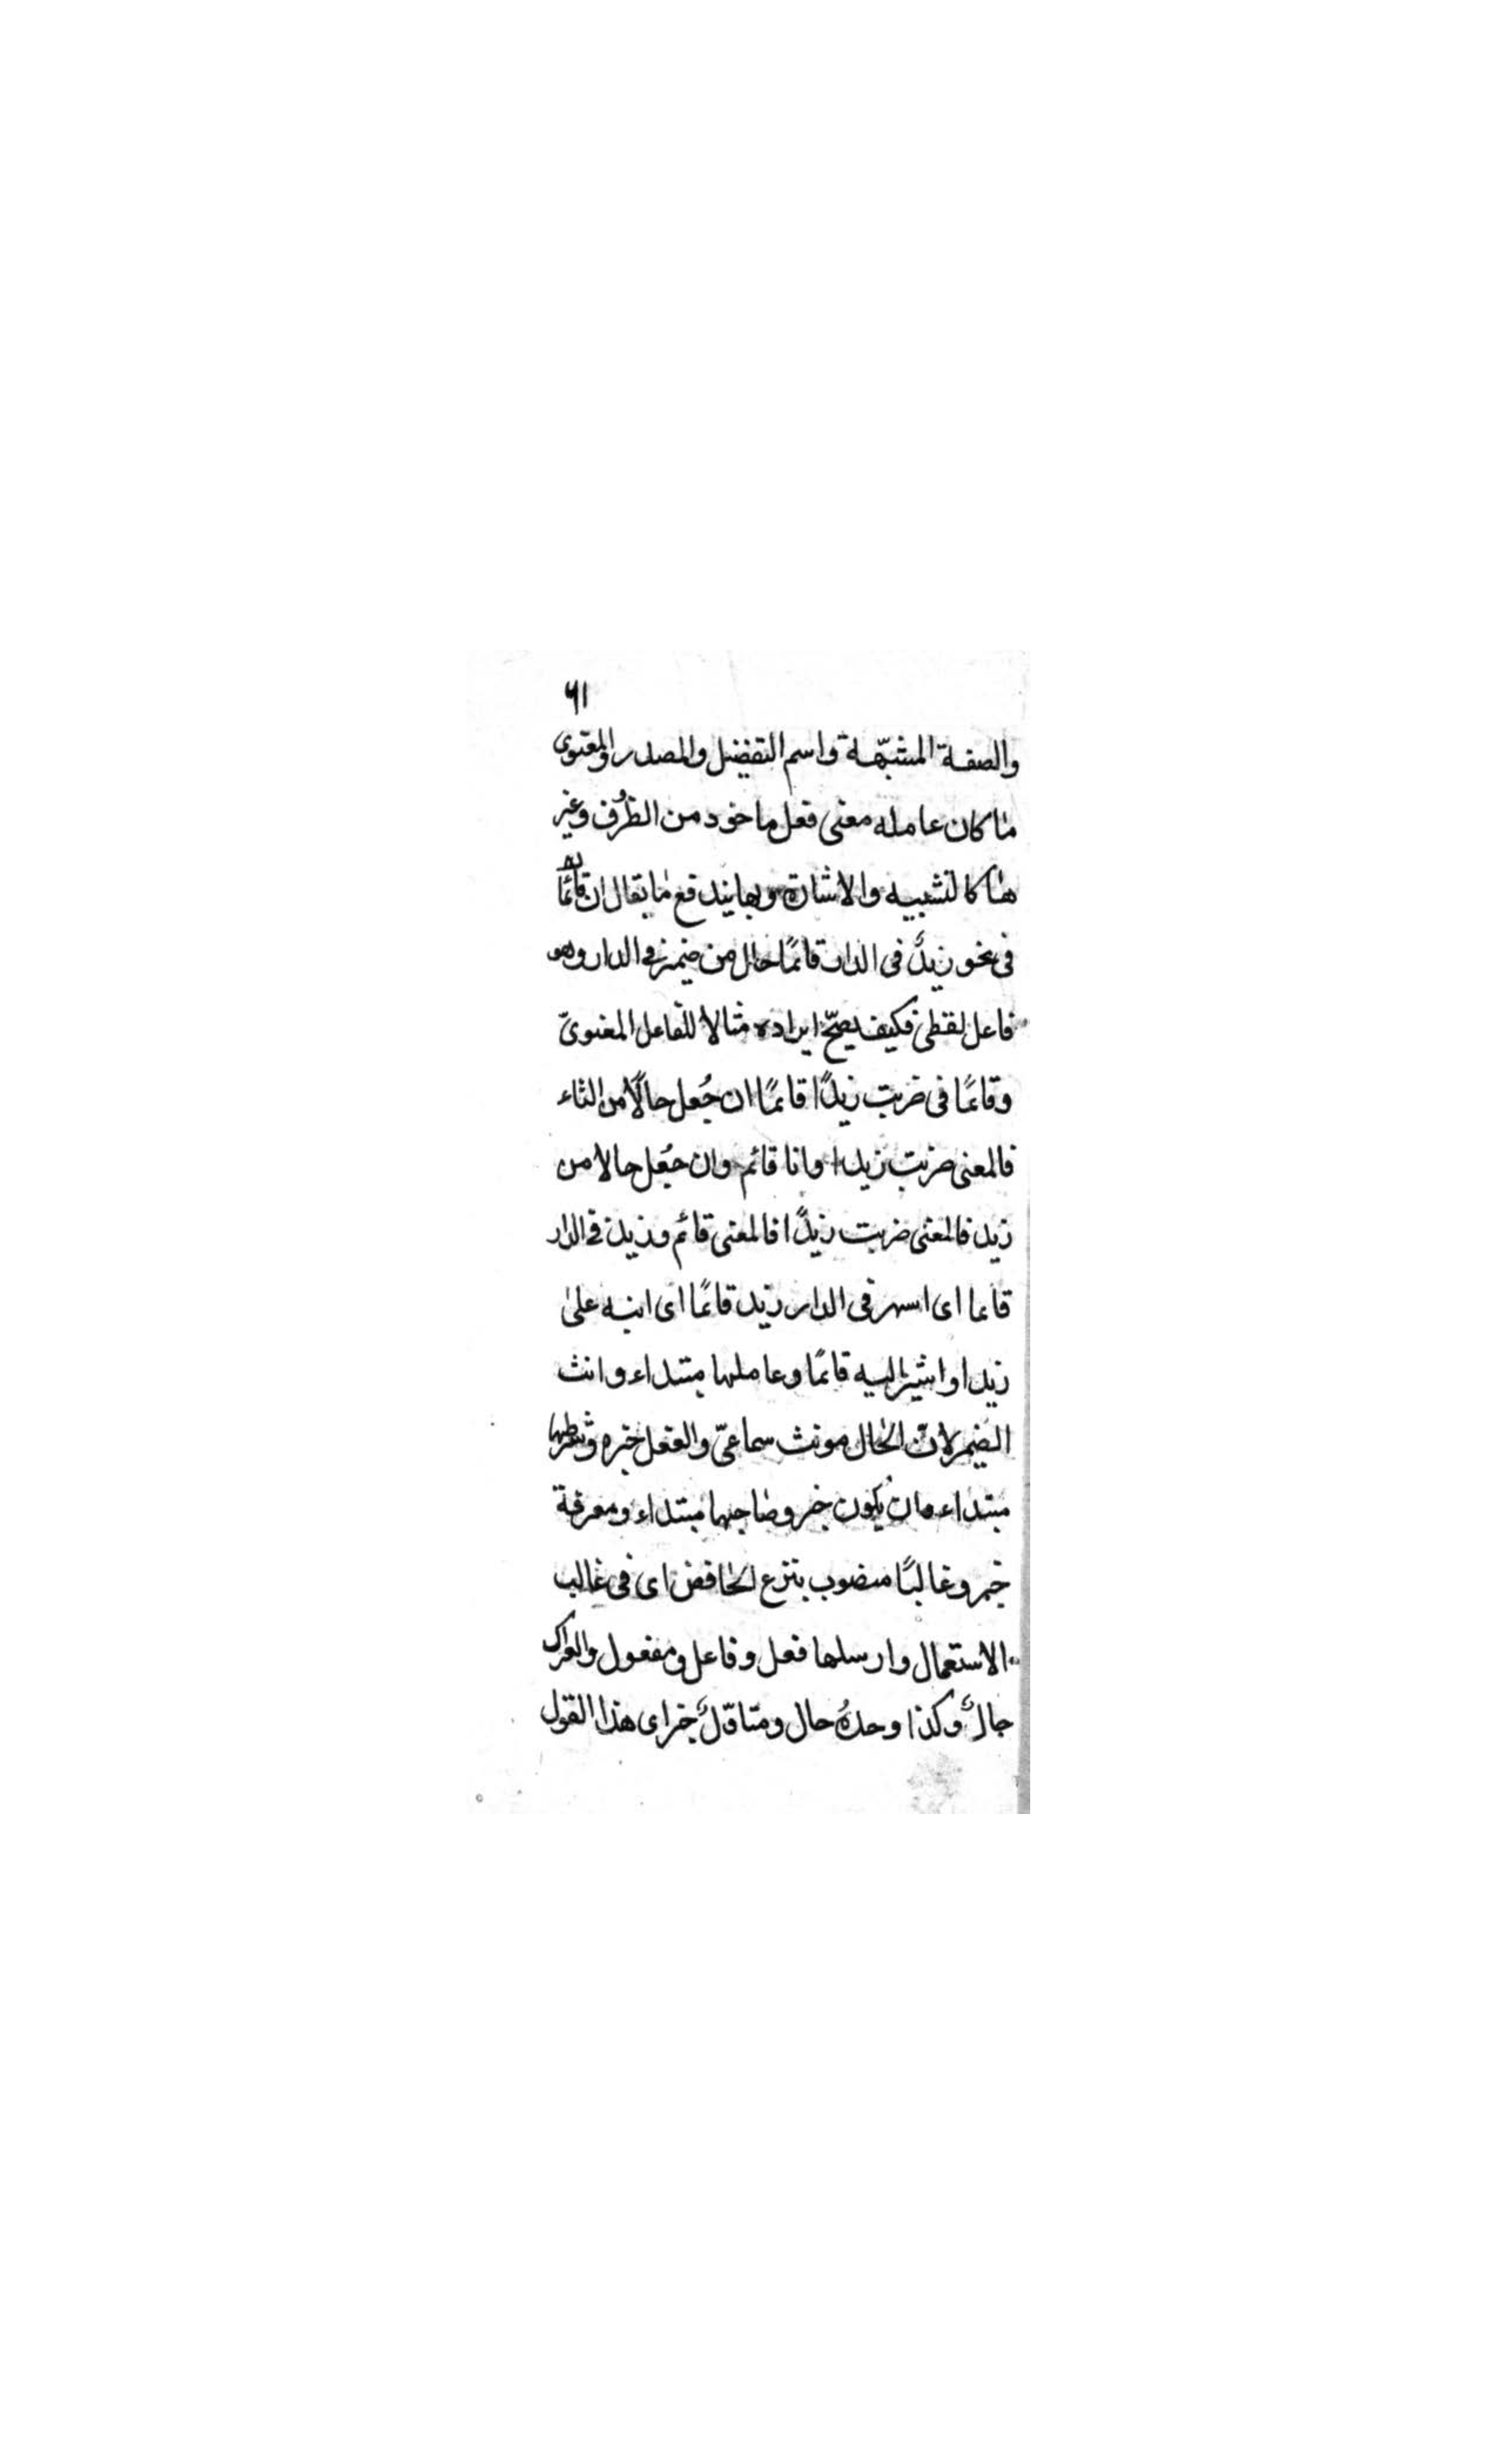 ٦١
والصفة المشبّهة واسم التفضيل والمصدر والمعنوى
ما كان عامله معنى فعل ماخود من الظرف وغير
هناكالتشبيه والاشارة وبهايندفع ما يقال ان قائمًا
فى نحو زيدٌ فى الدار قائمًا حال من ضمير فى الدار وهو
فاعل لفظى فكيف يصحّ ايراده مثالا للفاعل المعنوىّ
وقائمًا فى ضربت زيدًا قائمًا ان جُعل حالًا من التاء
فالمعنى ضربت زيدا وانا قائم وان جُعل حالا من
زيد فالمعنى ضربت زيدًا فالمعنى قائم وزيد فى الدار
قائما اى فى الدار زيد قائمًا اى انبه على
زيدا واشير اليه قائمًا وعاملها مبتداء وانث
الضمير لانّ الحال مونث سماعىّ والفعل خبره وشرطها
مبتداء وان يكون خبر وصاحبها مبتداء ومعرفة
خبر وغالبًا منصوب بنزع الخافض اى فى غالب
الاستعمال وارسلها فعل وفاعل ومفعول والعراك
حالٌ وكذا وحدهُ حال ومتاوّلٌ خبر اى هذا القول